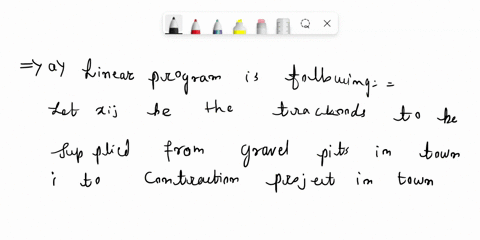 => a) Linear program is following: =
Let xij be the trackonds to be
supplied from gravel pits in town
i to Contraction project in town